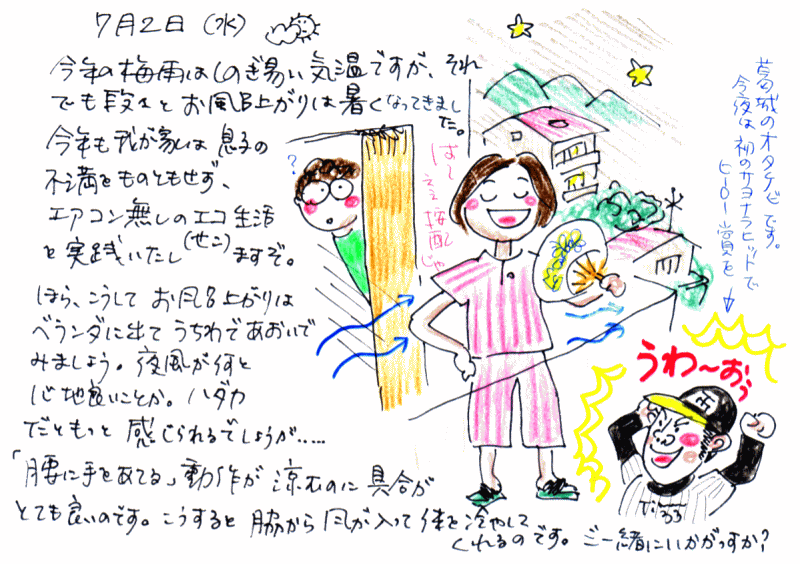 7月2日（水）
今年の梅雨はしのぎ易い気温ですが、それ
でも段々とお風呂上がりは暑くなってきまし
た。
今年も我が家は息子の
不満をものともせず、
エアコン無しのエコ生活
を実践いたし(せこ)ますぞ。
ほら、こうしてお風呂上がりは
ベランダに出てうちわであおいで
みましょう。夜風が何と
心地良いことか。ハダカ
だともっと感じられるでしょうが.....
「腰に手をあてる」動作が涼むのに具合が
とても良いのです。こうすると脇から風が入って体を冷やして
くれるのです。ご一緒にいかがっすか?
?
はー
ええ按配じゃ
葛城のオタケビです。
今夜は初のサヨナラヒットで
ヒーロー賞を
うわ〜おぅ
33